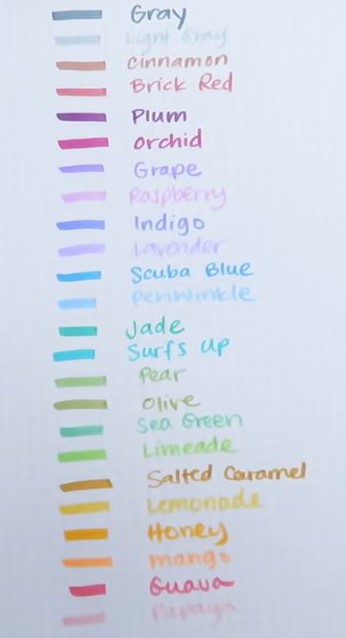 Gray
Light Gray
cinnamon
Brick Red
Plum
orchid
Grape
Raspberry
Indigo
Lavender
Scuba Blue
Periwinkle
Jade
Surfs Up
Pear
Olive
Sea Green
Limeade
Salted Caramel
Lemonade
Honey
mango
Guava
Papaya